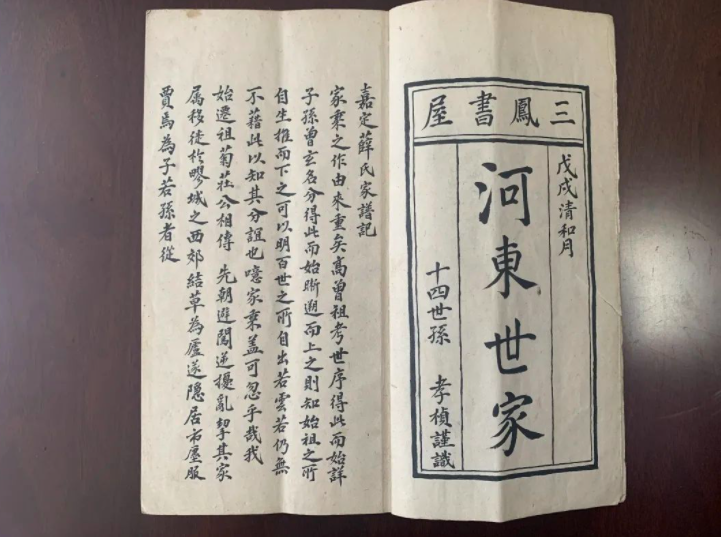 三鳳書屋
戊戌清和月
河東世家
十四世孫 孝楨謹識
嘉定薛氏家譜記
家乘之作由來重矣高曾祖考世序得此而始詳
子孫曾玄名分得此而始晰遡而上之則知始祖之所
自生推而下之可以明百世之所自出若雲若仍無
不藉此以知其分誼也噫家乘盖可忽乎哉我
始遷祖菊莊公相傳 先朝避闖逆擾亂挈其家
属移徙於疁城之西郊結草為廬遂隱居市廛服
賈焉為子若孫者從